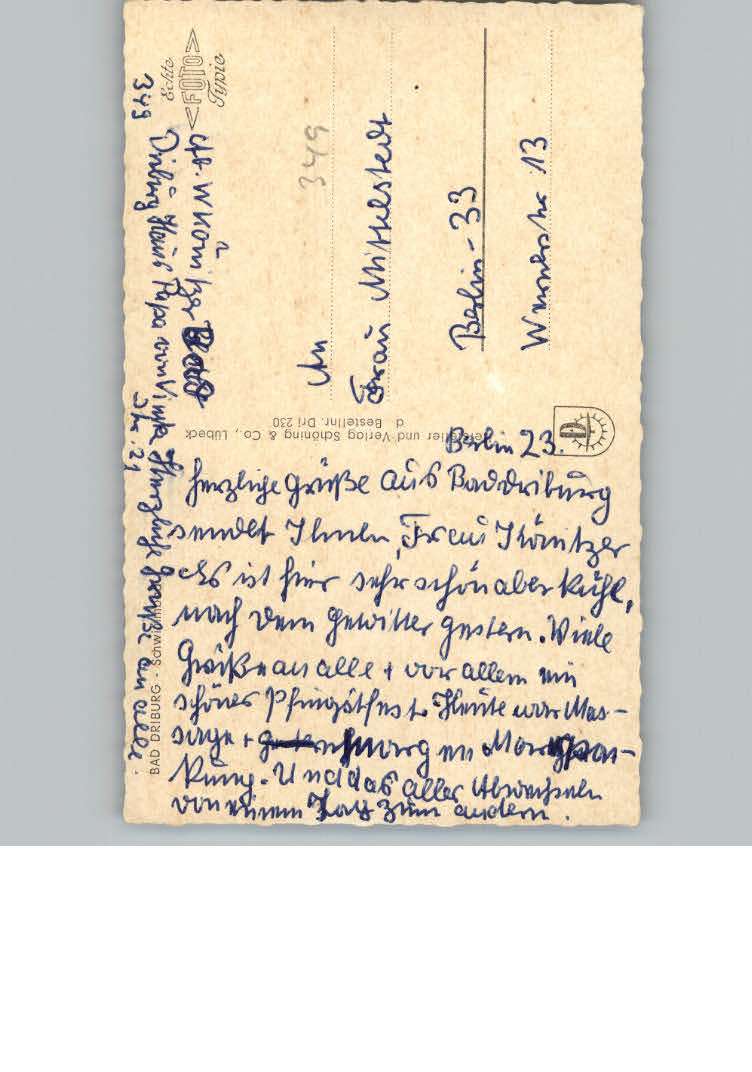 Berlin 23.
herzliche Grüße aus Bad Driburg
sendet Ihnen, Frau Könitzer
Es ist hier sehr schön aber kühl,
nach dem Gewitter gestern. Viele
Grüße an alle + vor allem ein
schönes Pfingstfest. Heute war Mas-
sage + morgen Moorpak-
kung. Und das alles Abwechseln
von einem Tag zum andern.
An
Frau Mittelstedt
Berlin-33
13
349
Echte
<FOTO>
Typie
Abs. W Könitzer
349 Driburg Haus Papa von Vinke Herzliche Grüße an alle.
Str. 21
Hersteller und Verlag Schöning & Co., Lübeck
d Bestellnr. Dri 230
BAD DRIBURG - Schwimmbad